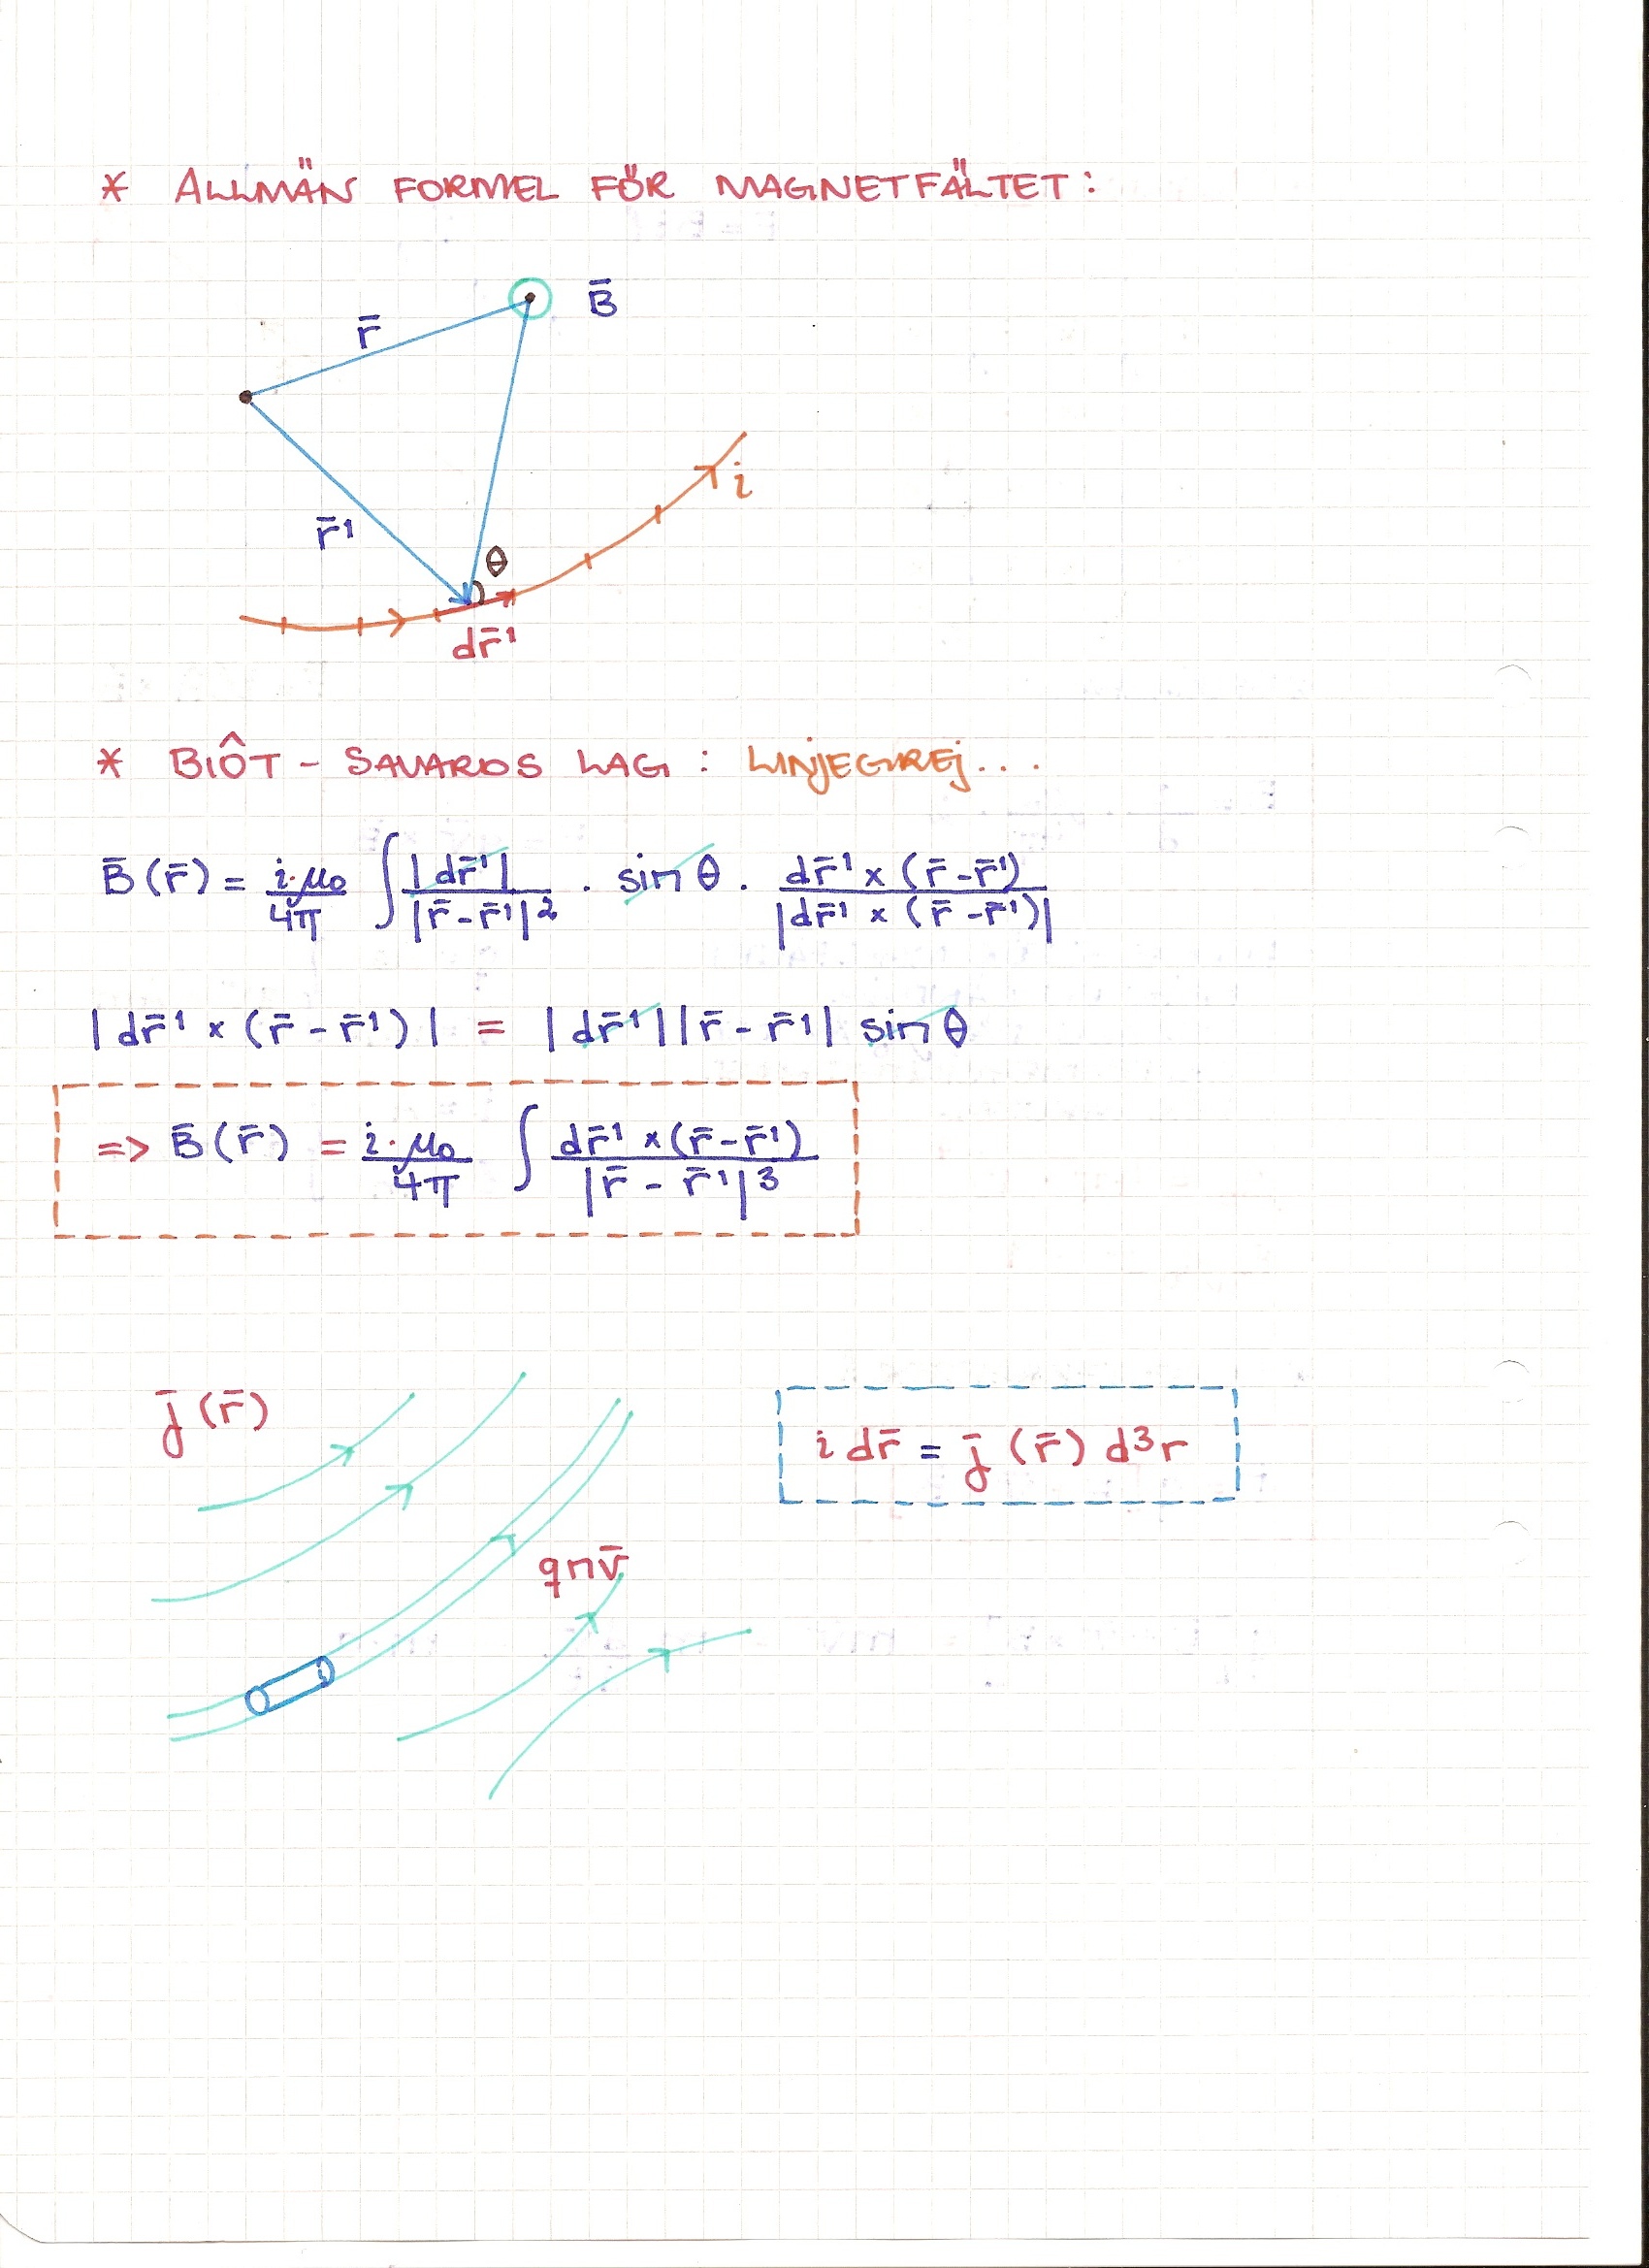 * ALLMÄN FORMEL FÖR MAGNETFÄLTET:
r̄
B̄
r̄'
θ
i
dr̄'
* BIÔT - SAVARDS LAG : LINJEGREJ...
B̄(r̄) = i·μ₀/4π ∫ |dr̄'|/|r̄-r̄'|² · sin θ · dr̄' × (r̄-r̄')/|dr̄' × (r̄-r̄')|
|dr̄' × (r̄ - r̄')| = |dr̄'||r̄ - r̄'| sin θ
=> B̄(r̄) = i·μ₀/4π ∫ dr̄' × (r̄-r̄')/|r̄ - r̄'|³
j̄(r̄)
i dr̄ = j̄(r̄) d³r
qnv̄